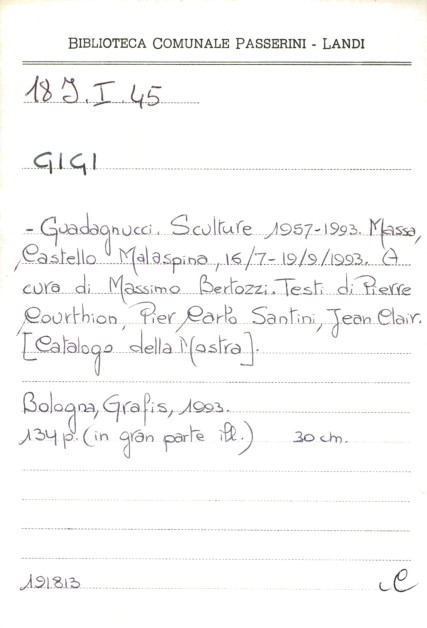 BIBLIOTECA COMUNALE PASSERINI - LANDI
18 J. I. 45
GIGI
- Guadagnucci. Sculture 1957-1993. Massa,
Castello Malaspina, 16/7-19/9/1993. A
cura di Massimo Bertozzi. Testi di Pierre
Courthion, Pier Carlo Santini, Jean Clair.
[Catalogo della Mostra].
Bologna, Grafis, 1993.
134 p. (in gran parte ill.) 30 cm.
191813 C